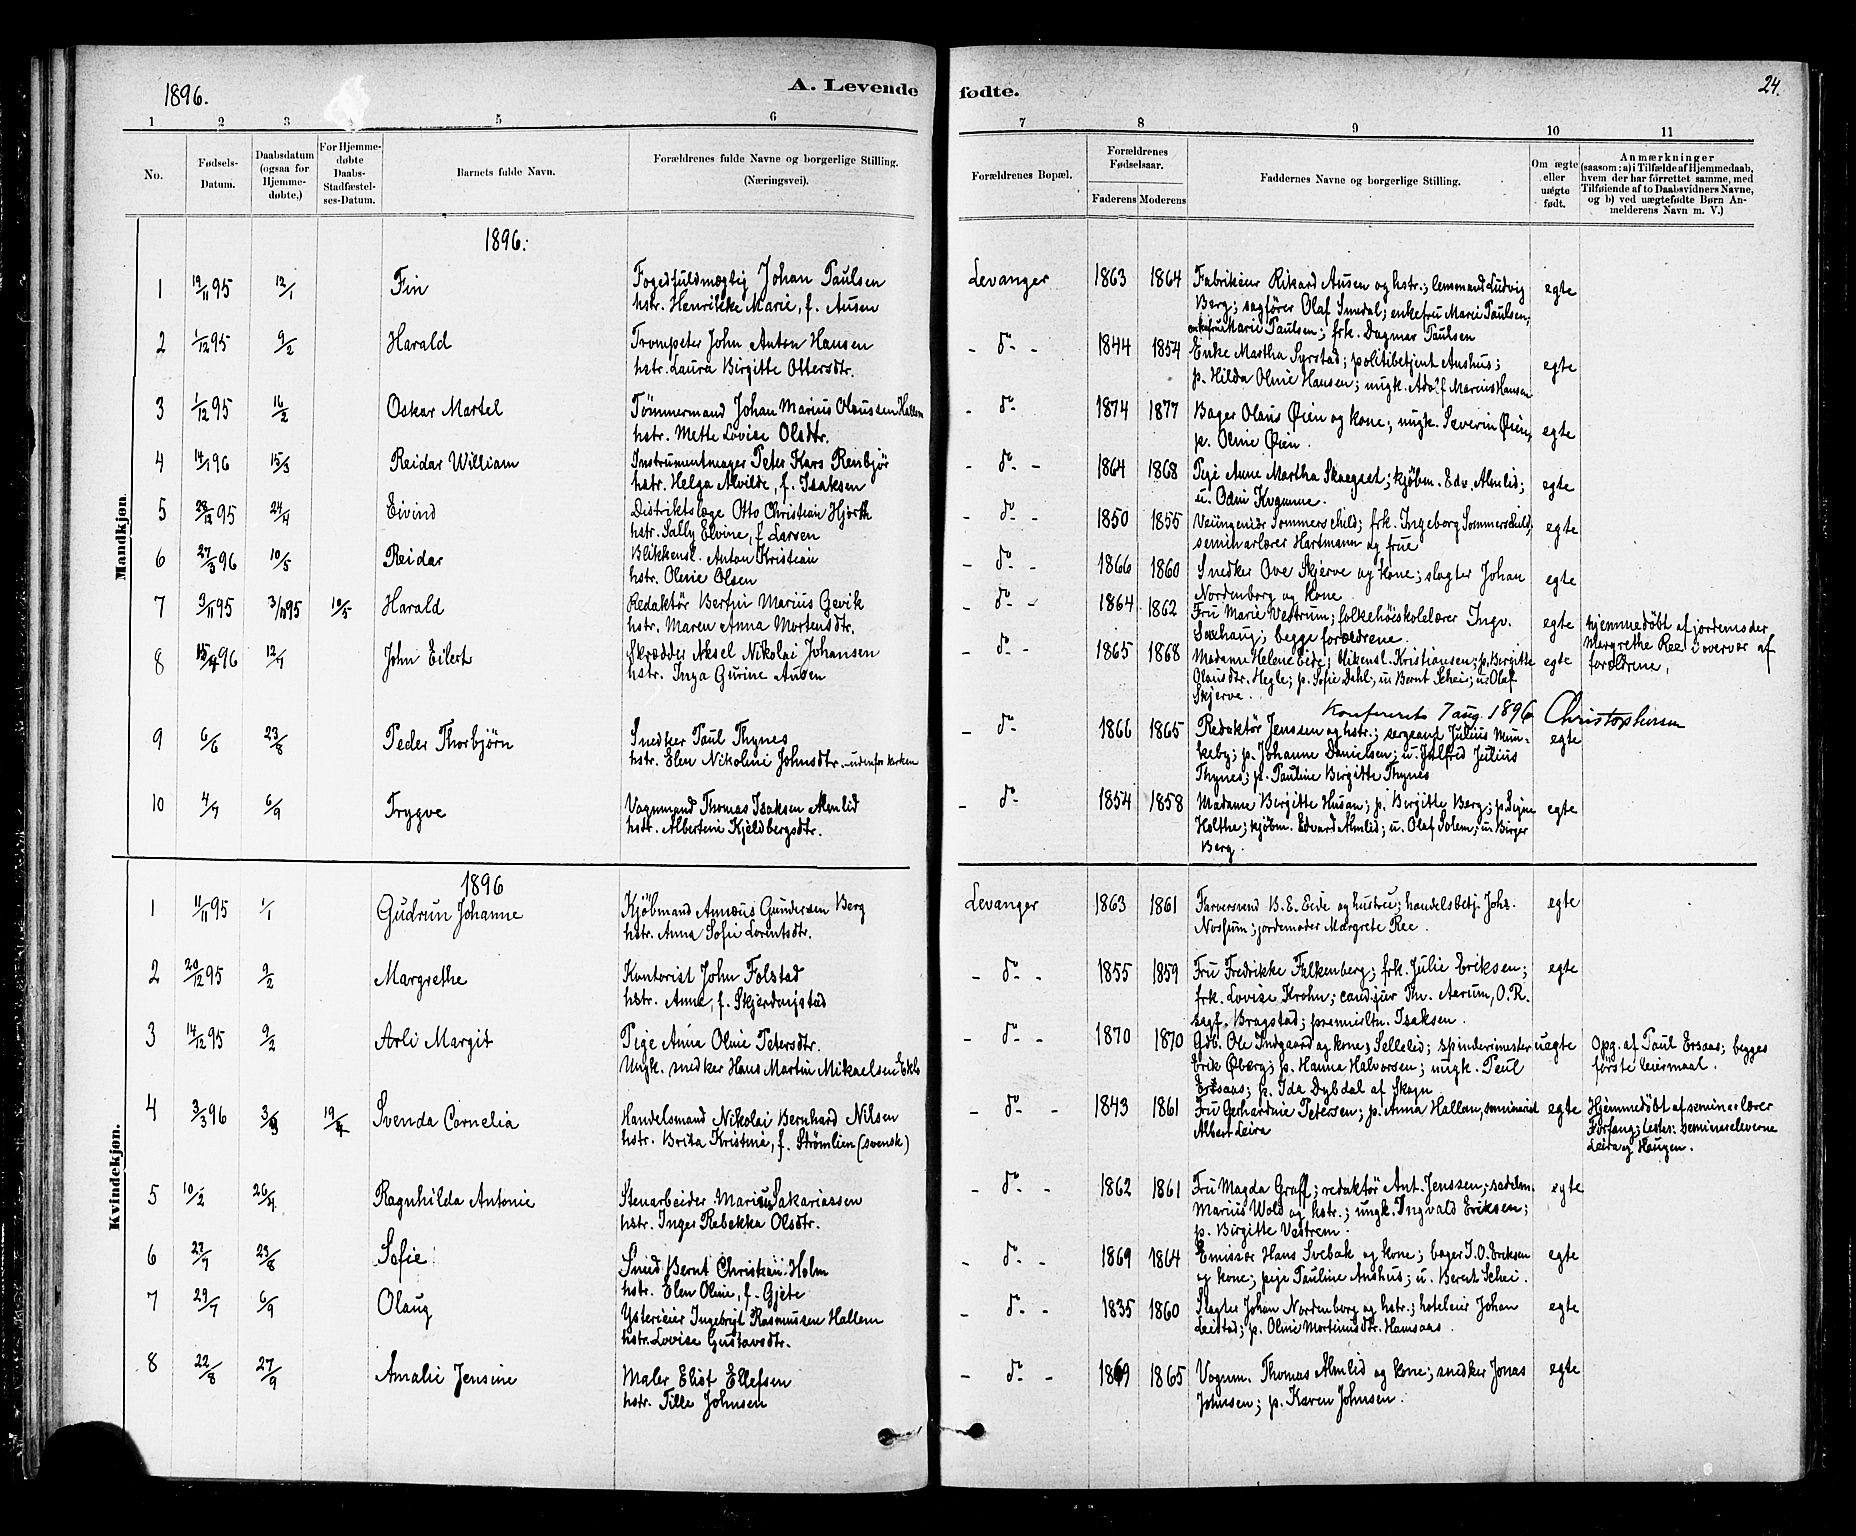 1896.
A. Levende fødte.
24.
1 2 3 5 6 7 8 9 10 11
No.
Fødsels-Datum.
Daabsdatum (ogsaa for Hjemmedøbte,)
For Hjemmedøbte Daabs-Stadfæstelses-Datum.
Barnets fulde Navn.
Forældrenes fulde Navne og borgerlige Stilling. (Næringsvei).
Forældrenes Bopæl.
Forældrenes Fødselsaar.
Faderens Moderens
Faddernes Navne og borgerlige Stilling.
Om ægte eller uægte født.
Anmærkninger
(saasom: a) i Tilfælde af Hjemmedaab,
hvem der har førrettet samme, med
Tilføiende af to Daabsvidners Navne,
og b) ved uægtefødte Børn Anmelderens Navn m. V.)
Mandkjøn.
1896.
1 19/11 95 12/1 Fin
Fogedfuldmægtig Johan Paulsen
hstr. Henrikke Marie, f. Ausen
Levanger 1863 1864
Fabrikeier Rikard Ausen og hstr.; lensmand Ludvig
Berg; sagfører Olaf Smedal; enkefru Marie Paulsen;
enkefru Marie Paulsen; frk. Dagmar Paulsen
egte
2 1/12 95 9/2 Harald
Trompeter John Anton Hansen
hstr. Laura Birgitte Ottersdtr.
- do - 1844 1854
Enke Martha Syrstad; politibetjent Aushus;
p. Hilda Oline Hansen; ungk. Adolf Marius Hansen
egte
3 1/12 95 16/2 Oskar Martel
Tømmermand Johan Marius Olaussen Hallem
hstr. Mette Lovise Olsdtr.
- do - 1874 1877
Bager Olaus Øien og kone; ungk. Severin Øien,
p. Oline Øien.
egte
4 14/1 96 15/3 Reidar William
Instrumentmager Peter Kars Renbjør
hstr. Helga Alvilde, f. Isaksen
- do - 1864 1868
Pige Anne Martha Skaegset; kjøbm. Edv. Almlid;
u. Odin Kvamme.
egte
5 28/12 95 24/4 Eivind
Distriktslæge Otto Christian Hjorth
hstr. Sally Elvine, f. Larsen
- do - 1850 1855
Veiingeniør Sommerschild; frk. Ingeborg Sommerschild;
seminarlærer Hartmann og frue
egte
6 27/3 96 10/5 Reidar
Blikkensl. Anton Kristian
hstr. Oline Olsen
- do - 1866 1860
Snedker Ove Skjerve og kone; slagter Johan
Nordenborg og kone
egte
7 3/11 95 3/11 95 10/5 Harald
Redaktør Bertin Marius Gevik
hstr. Maren Anna Mortensdtr.
- do - 1864 1862
Fru Marie Vestrum; folkehøiskolelærer Ingv.
Saxhaug; begge forældrene.
egte
hjemmedøbt af jordemoder
Margrethe Ree i overvær af
forældrene,
8 15/4 96 12/7 John Eilert
Skrædder Aksel Nikolai Johansen
hstr. Inga Gurine Ausen
- do - 1865 1868
Madame Helene Eide; blikensl. Kristiansen; p. Birgitte
Olausdtr. Hegle; p. Sofie Dahl; u. Bernt Scheis; u. Olaf
Skjerve.
egte
Konfererets 7 aug. 1896 Christophersen
9 6/6 23/8 Peder Thorbjørn
Snedker Paul Thynes
hstr. Elen Nikoline Johnsdtr. - udenfor kirken
- do - 1866 1865
Redaktør Jenssen og hstr.; sergeant Julius Mun-
keby; p. Johanne Danielsen; u. Julfred Julius
Thynes; p. Pauline Birgitte Thynes
egte
10 4/7 6/9 Trygve
Vognmand Thomas Isaksen Almlid
hstr. Albertine Kjeldbergsdtr.
- do - 1854 1858
Madame Birgitte Husan; p. Birgitte Berg; p. Signe
Holthe; kjøbm. Edvard Almlid; u. Olaf Solem; u. Birger
Berg.
egte
Kvindekjøn.
1896
1 11/11 95 1/1 Gudrun Johanne
Kjøbmand Annæus Gundersen Berg
hstr. Anna Sofie Lorentsdtr.
Levanger 1863 1861
Farversvend B. E. Eide og hustru; handelsbetj. Johs.
Nossum; jordemoder Margrete Ree.
egte
2 20/12 95 9/2 Margrethe
Kontorist John Folstad
hstr. Anna, f. Skjerdingstad
- do - 1855 1859
Fru Fredrikke Falkenberg; frk. Julie Eriksen;
frk. Lovise Krohn; cand. jur Th. Aarum, O.R.
sagf. Bragstad; premierltn. Isaksen.
egte
3 14/12 95 9/2 Arli Margit
Pige Anna Oline Petersdtr.
Ungk. snedker Hans Martin Mikaelsen Eklo
- do - 1870 1870
Gdb. Ole Indgaard og kone, Sellelid; spinderimester
Erik Øberg; p. Hanna Halvorsen; ungk. Paul
Ersaas; p. Ida Dybdal af Skogn
uegte
Opg. af Paul Ersaas; begges
første leiermaal.
4 3/3 96 3/3 19/4 Svenda Cornelia
Handelsmand Nikolai Bernhard Nilsen
hstr. Brita Kristine, f. Strømlien (svensk)
- do - 1843 1861
Fru Gerhardine Petersen; p. Anna Hallan, seminarist
Albert Leira
egte
Hjemmedøbt af seminarlærer
Forfang; tester: seminareleverne
Leira og Haugen.
5 10/2 26/4 Ragnhilda Antonie
Stenarbeider Marius Sakariassen
hstr. Inger Rebekka Olsdtr.
- do - 1862 1861
Fru Magda Graff; redaktør Ant. Jenssen; sadelm.
Marius Wold og hstr.; ungk. Ingvald Eriksen;
p. Birgitte Vestrem.
egte
6 23/7 23/8 Sofie
Smed Bernt Christian Holm
hstr. Elen Oline, f. Gjete
- do - 1869 1864
Emissær Hans Svebak og kone; bager I. O. Eriksen
og kone; pige Pauline Aushus; u. Berent Schei.
egte
7 29/7 6/9 Olaug
Ysterieier Ingebrigt Rasmussen Hallem
hstr. Lovise Gustavsdtr.
- do - 1835 1860
Slagter Johan Nordenborg og hstr.; hoteleier Johan
Leistad; p. Oline Mortinusdtr. Hamsaas.
egte
8 22/8 27/9 Amalie Jensine
Maler Eliot Ellefsen
hstr. Tille Johnsen
- do - 1869 1865
Vognm. Thomas Almlid og kone; snedker Jonas
Johnsen; p. Karen Johnsen.
egte